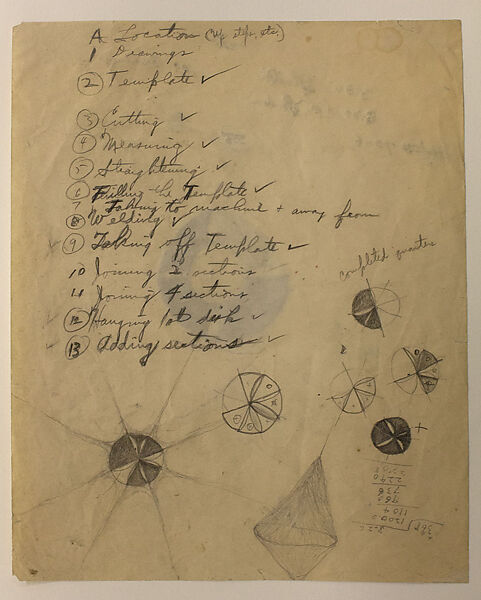 A Location (up steps, etc.)
1 Drawings
2 Template ✓
3 Cutting ✓
4 Measuring ✓
5 Straightening ✓
6 Filling the Template ✓
7 Taking to machine + away from
8 Welding ✓
9 Taking off Template ✓
10 Joining 2 sections
11 Joining 4 sections
12 Hanging 1st disk ✓
13 Adding sections ✓
completed quarter
2290
736